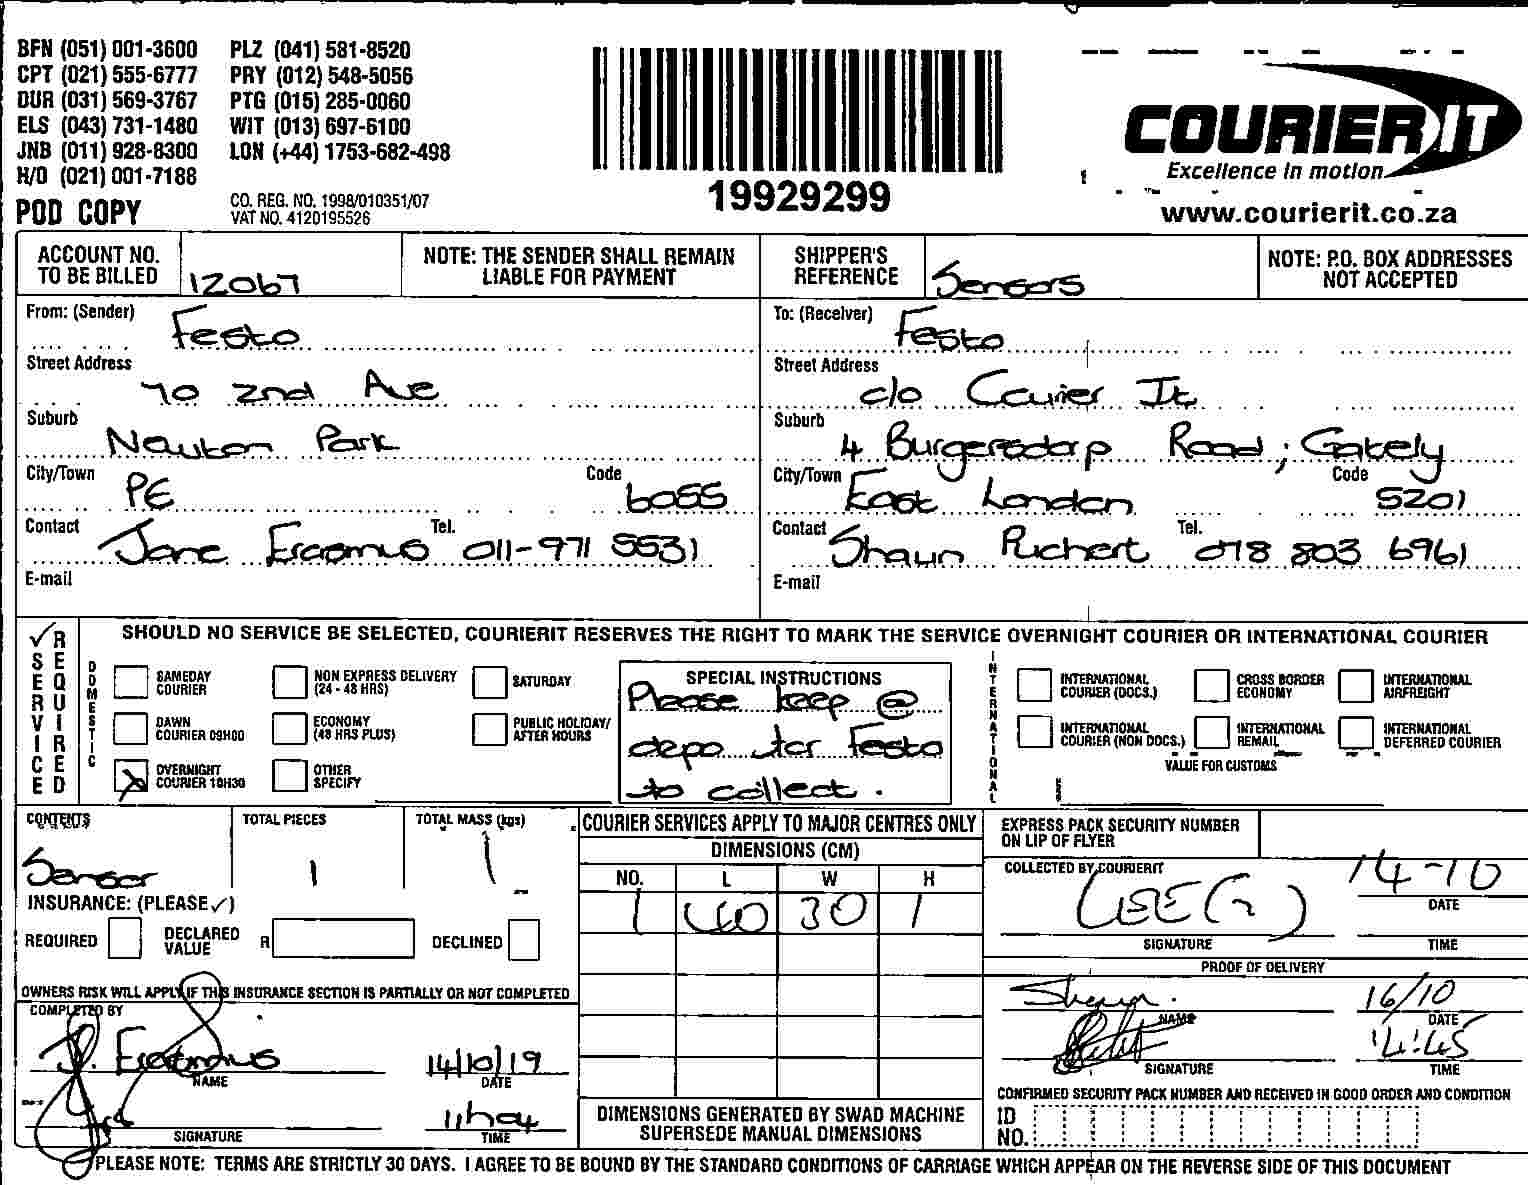 BFN (051) 001-3600 PLZ (041) 581-8520
CPT (021) 555-6777 PRY (012) 548-5056
DUR (031) 569-3767 PTG (015) 285-0060
ELS (043) 731-1480 WIT (013) 697-6100
JNB (011) 928-8300 LON (+44) 1753-682-498
H/O (021) 001-7188
POD COPY
CO. REG. NO. 1998/010351/07
VAT NO. 4120195526
19929299
COURIER IT
Excellence in motion
www.courierit.co.za
ACCOUNT NO. TO BE BILLED 12067
NOTE: THE SENDER SHALL REMAIN LIABLE FOR PAYMENT
SHIPPER'S REFERENCE Sensors
NOTE: P.O. BOX ADDRESSES NOT ACCEPTED
From: (Sender) Festo
Street Address 70 2nd Ave
Suburb Newton Park
City/Town PE Code 6055
Contact Jane Erasmus Tel. 011-971 5531
E-mail
To: (Receiver) Festo
Street Address c/o Courier It
Suburb 4 Burgersdorp Road; Gately
City/Town East London Code 5201
Contact Shaun Puchert Tel. 078 803 6961
E-mail
✓ SERVICE REQUIRED
SHOULD NO SERVICE BE SELECTED, COURIERIT RESERVES THE RIGHT TO MARK THE SERVICE OVERNIGHT COURIER OR INTERNATIONAL COURIER
DOMESTIC
SAMEDAY COURIER
NON EXPRESS DELIVERY (24 - 48 HRS)
SATURDAY
DAWN COURIER 09H00
ECONOMY (48 HRS PLUS)
PUBLIC HOLIDAY/ AFTER HOURS
OVERNIGHT COURIER 10H30
OTHER SPECIFY
SPECIAL INSTRUCTIONS
Please keep @
depo for Festo
to collect.
INTERNATIONAL
INTERNATIONAL COURIER (DOCS.)
CROSS BORDER ECONOMY
INTERNATIONAL AIRFREIGHT
INTERNATIONAL COURIER (NON DOCS.)
INTERNATIONAL REMAIL
INTERNATIONAL DEFERRED COURIER
VALUE FOR CUSTOMS
CONTENTS Sensor
TOTAL PIECES 1
TOTAL MASS (kgs) 1
INSURANCE: (PLEASE ✓)
REQUIRED DECLARED VALUE R DECLINED
OWNERS RISK WILL APPLY IF THIS INSURANCE SECTION IS PARTIALLY OR NOT COMPLETED
COMPLETED BY
J. Erasmus 14/10/19
NAME DATE
11h04
SIGNATURE TIME
COURIER SERVICES APPLY TO MAJOR CENTRES ONLY
DIMENSIONS (CM)
NO. L W H
1 40 30 1
DIMENSIONS GENERATED BY SWAD MACHINE
SUPERSEDE MANUAL DIMENSIONS
EXPRESS PACK SECURITY NUMBER
ON LIP OF FLYER
COLLECTED BY COURIERIT
14-10
DATE
SIGNATURE TIME
PROOF OF DELIVERY
Shaun. 16/10
NAME DATE
14:45
SIGNATURE TIME
CONFIRMED SECURITY PACK NUMBER AND RECEIVED IN GOOD ORDER AND CONDITION
ID NO.
PLEASE NOTE: TERMS ARE STRICTLY 30 DAYS. I AGREE TO BE BOUND BY THE STANDARD CONDITIONS OF CARRIAGE WHICH APPEAR ON THE REVERSE SIDE OF THIS DOCUMENT